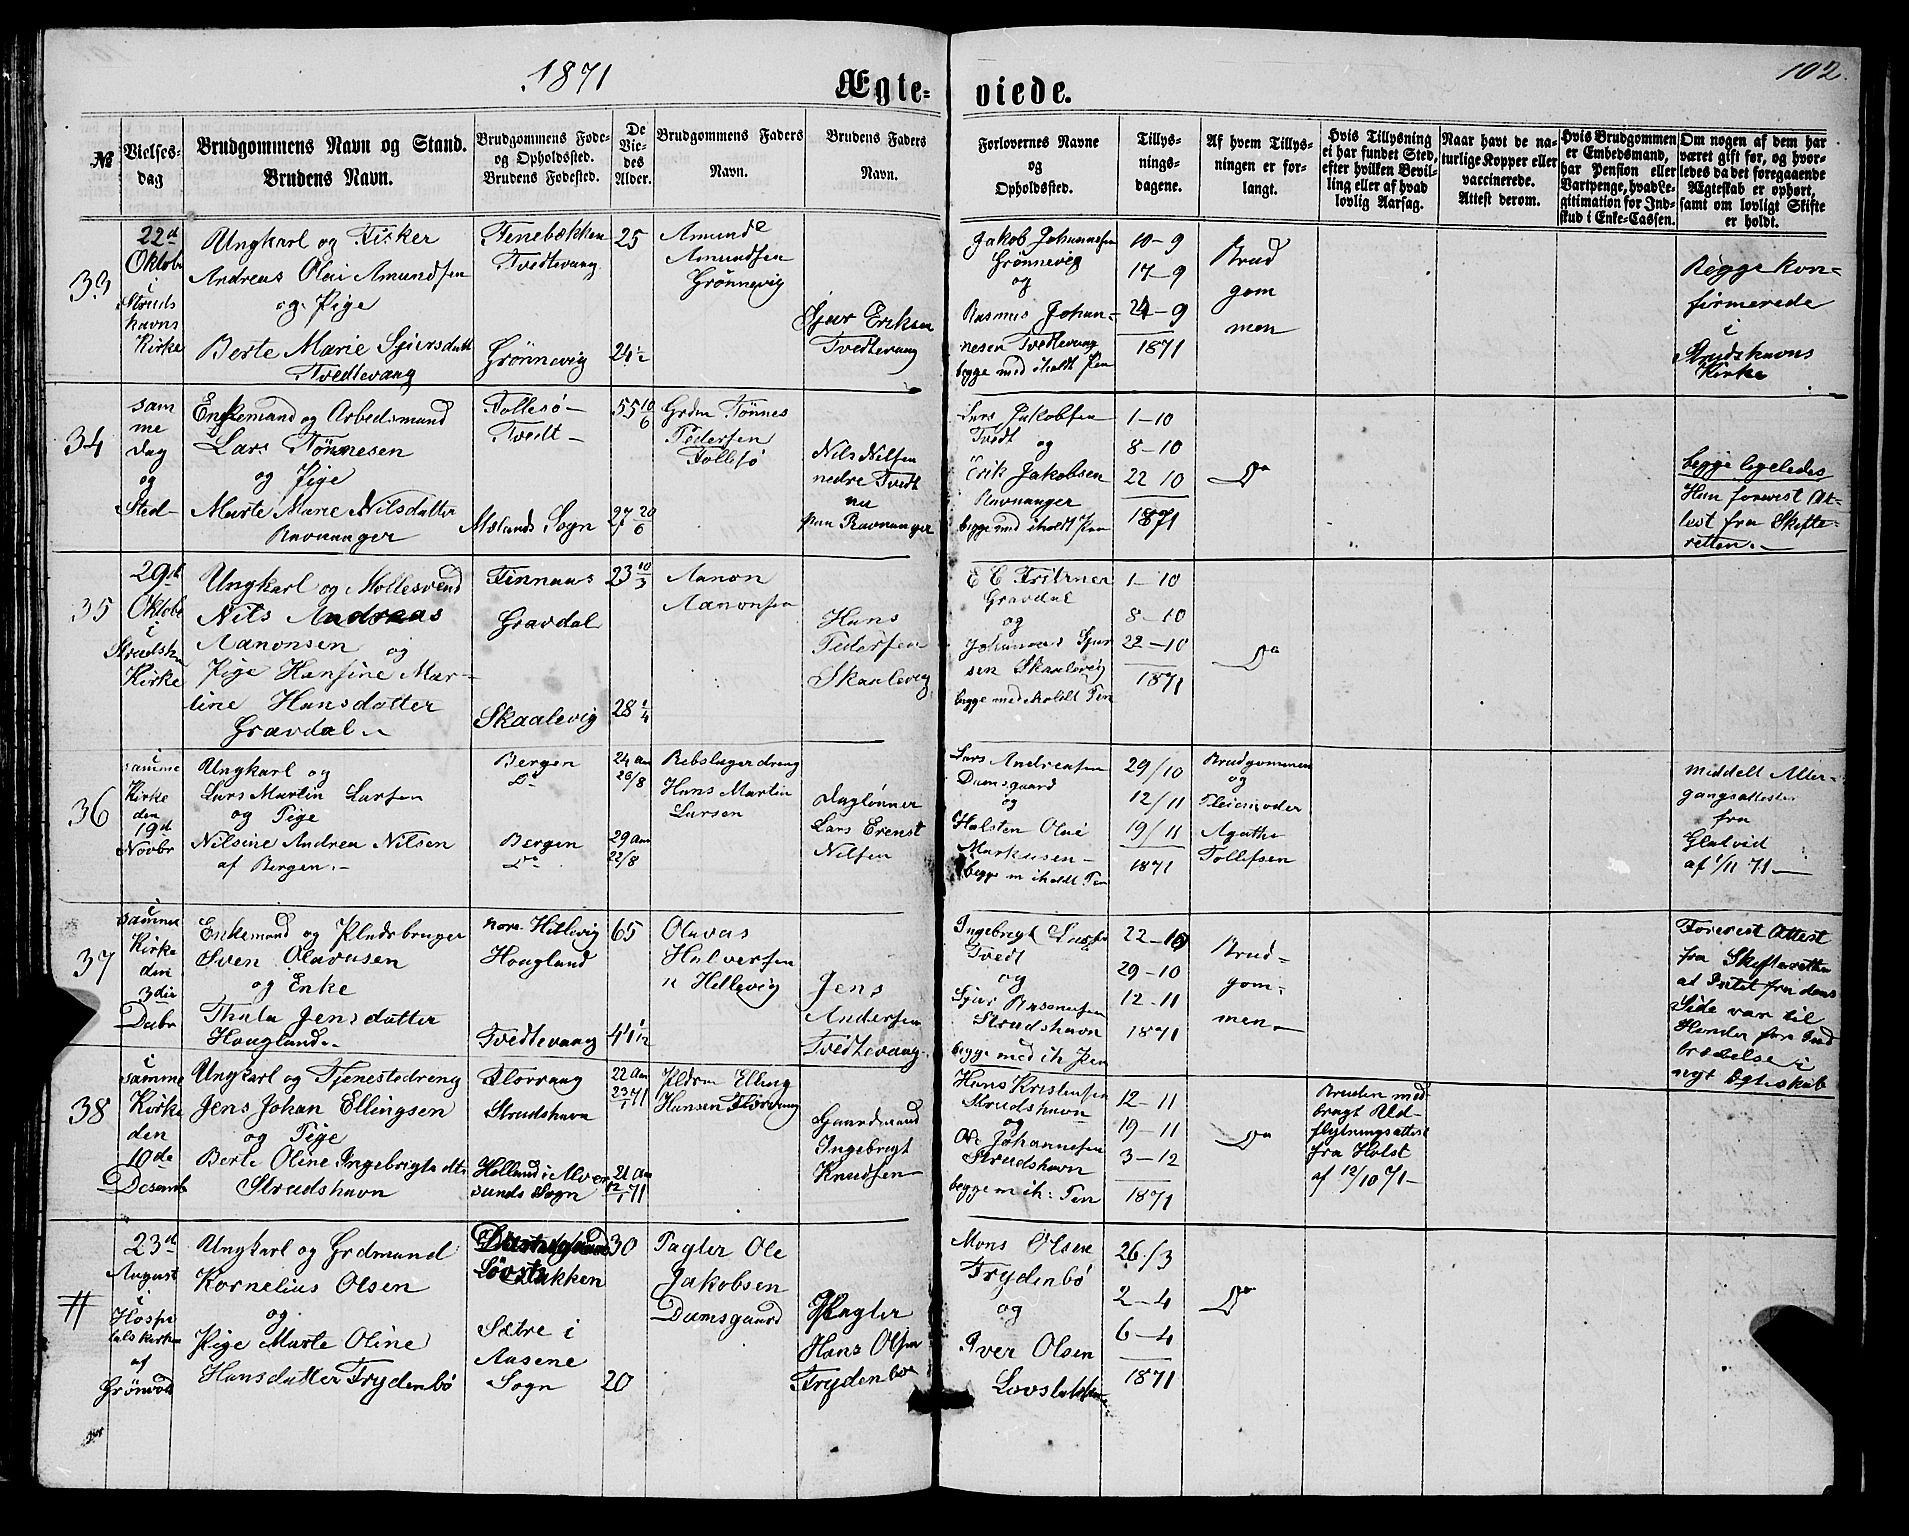 1871
Ægte-
viede.
102.
№
Vielses-
dag
Brudgommens Navn og Stand.
Brudens Navn.
Brudgommens Føde-
og Opholdssted.
Brudens Fødested.
De
Vie-
des
Alder.
Brudgommens Faders
Navn.
Brudens Faders
Navn.
Forlovernes Navne
og
Opholdssted.
Tillys-
nings-
dagene.
Af hvem Tillys-
ningen er for-
langt.
Hvis Tillysning
ei har fundet Sted,
efter hvilken Bevil-
ling eller af hvad
lovlig Aarsag.
Naar havt de na-
turlige Kopper eller
vaccinerede.
Attest derom.
Hvis Brudgommen
er Embedsmand,
har Pension eller
Vartpenge, hvad Le-
gitimation for Ind-
skud i Enke-Cassen.
Om nogen af dem har
været gift før, og hvor-
ledes da det foregaaende
Ægteskab er ophørt,
samt om lovligt Skifte
er holdt.
33
22d
Oktobr
i
Struds
havns
Kirke
Ungkarl og Fisker
Andreas Olai Amundsen
og Pige
Berte Marie Sjursdatt
Tvedtevang
Fenebækken
Tvedtevang
Grønnevig
25
24½
Amund
Amundsen
Grønnevig
Sjur Eriksen
Tvedtevang
Jakob Johannesen
Grønnevig
og
Rasmus Johan-
nesen Tvedtevang
begge med iholdt Pen
10-9
17-9
24-9
1871
Brud
gom
men
Begge kon-
firmerede
i
Strudshavns
Kirke
34
sam
me
Dag
og
Sted-
Enkemand og Arbedsmand
Lars Tønnesen
og Pige
Marte Marie Nilsdatter
Ravnanger
Follesø-
Tvedt-
Mælands Sogn
55 10/6
27 20/6
Grdm Tønnes
Pedersen
Follesø
Nils Nilsen
nedre Tvedt
nu
paa Ravnanger
Lars Jakobsen
Tvedt
og
Erik Jakobsen
Ravnanger
begge med iholdt Pen
1-10
8-10
22 10
1871
Do
begge ligeledes
Han forevist At-
test fra Skifte-
retten.-
35
29d
Oktobr
i
Strudsh
Kirke
Ungkarl og Møllesvend
Nils Andreas
Aanonsen og
Pige Hansine Mar-
tine Hansdatter
Gravdal
Finnaas
Gravdal
Skaalevig
23 10/3
28 1/4
Aanon
Aanonsen
Hans
Pedersen
Skaalevig
E C Fritzner
Gravdal
og
Johannes Sjur
sen Skaalevig
begge med iholdt Pen
1-10
8-10
22-10
1871
Do
36
i
samme
Kirke
den
19d
Novbr
Ungkarl og
Lars Martin Larsen
og Pige
Nilsine Andrea Nilsen
af Bergen.-
Bergen
Do
Bergen
Do
24 Aar
26/8
29 Aar
22/8
Rebslagerdreng
Hans Martin
Larsen
Dagløner
Lars Erenst
Nilsen
Lars Andreasen
Damsgaard
og
Halsten Olai
Markusen-
begge m iholdt Pen
29/10
12/11
19/11
1871
Brudgommen
og
Pleiemoder
Agathe
Tollefsen
middelt Alter-
gangsattester
fra
af 1/11 71-
37
i
samme
Kirke
den
3die
Decbr
Enkemand og Pladsbruger
Sven Olavusen
og Enke
Thala Jensdatter
Hougland.-
nore Hellevig
Hougland
Tvedtevang
65
44 1/2
Olavas
Halversen
n Hellevig
Jens
Andersen
Tvedtevang
Ingebregt
Tvedt
og
Sjur Rasmusen
Strudshavn
begge med ih Pen
22-10
29-10
12-11
1871
Brud-
gom-
men
Forevist Attest
fra Skifteretten
at Intet fra dens
Side var til
Hinder for Ind
trædelse i
nyt Ægteskab
38
i
samme
Kirke
den
10de
Desemb
Ungkarl og Tjenestedreng
Jens Johan Ellingsen
og Pige
Berte Oline Ingebrigtsdt
Strudshavn
Florvaag
Strudshavn
Helland i Alver
sunds Sogn
22 Aar
23/1 71
21 Aar
12/1 71
Pldrm Elling
Hansen Florvaag
Gaardmand
Ingebregt
Knudsen
Hans Kristensen
Strudshavn
og
Ole Johannesen
Strudshavn
begge m ih: Pen
12-11
19-11
3-12
1871
Do
Bruden med
bragt Ud-
flytningsattest
fra Holst
af 12/10 71-
#
23d
August
i
Hospi
talskirken
af
Grønvold
Ungkarl og Grdmand
Kornelius Olsen
og
Pige Marte Oline
Hansdatter Frydenbø
Damsgaard
Løvstakken
Sætre i
Aasene
Sogn
30
20
Pagter Ole
Jakobsen
Damsgaard
Pagter
Hans Olsen
Frydenbø
Mons Olsen
Frydenbø
og
Iver Olsen
Lovstakken
26/3
2-4
6-4
1871
Do